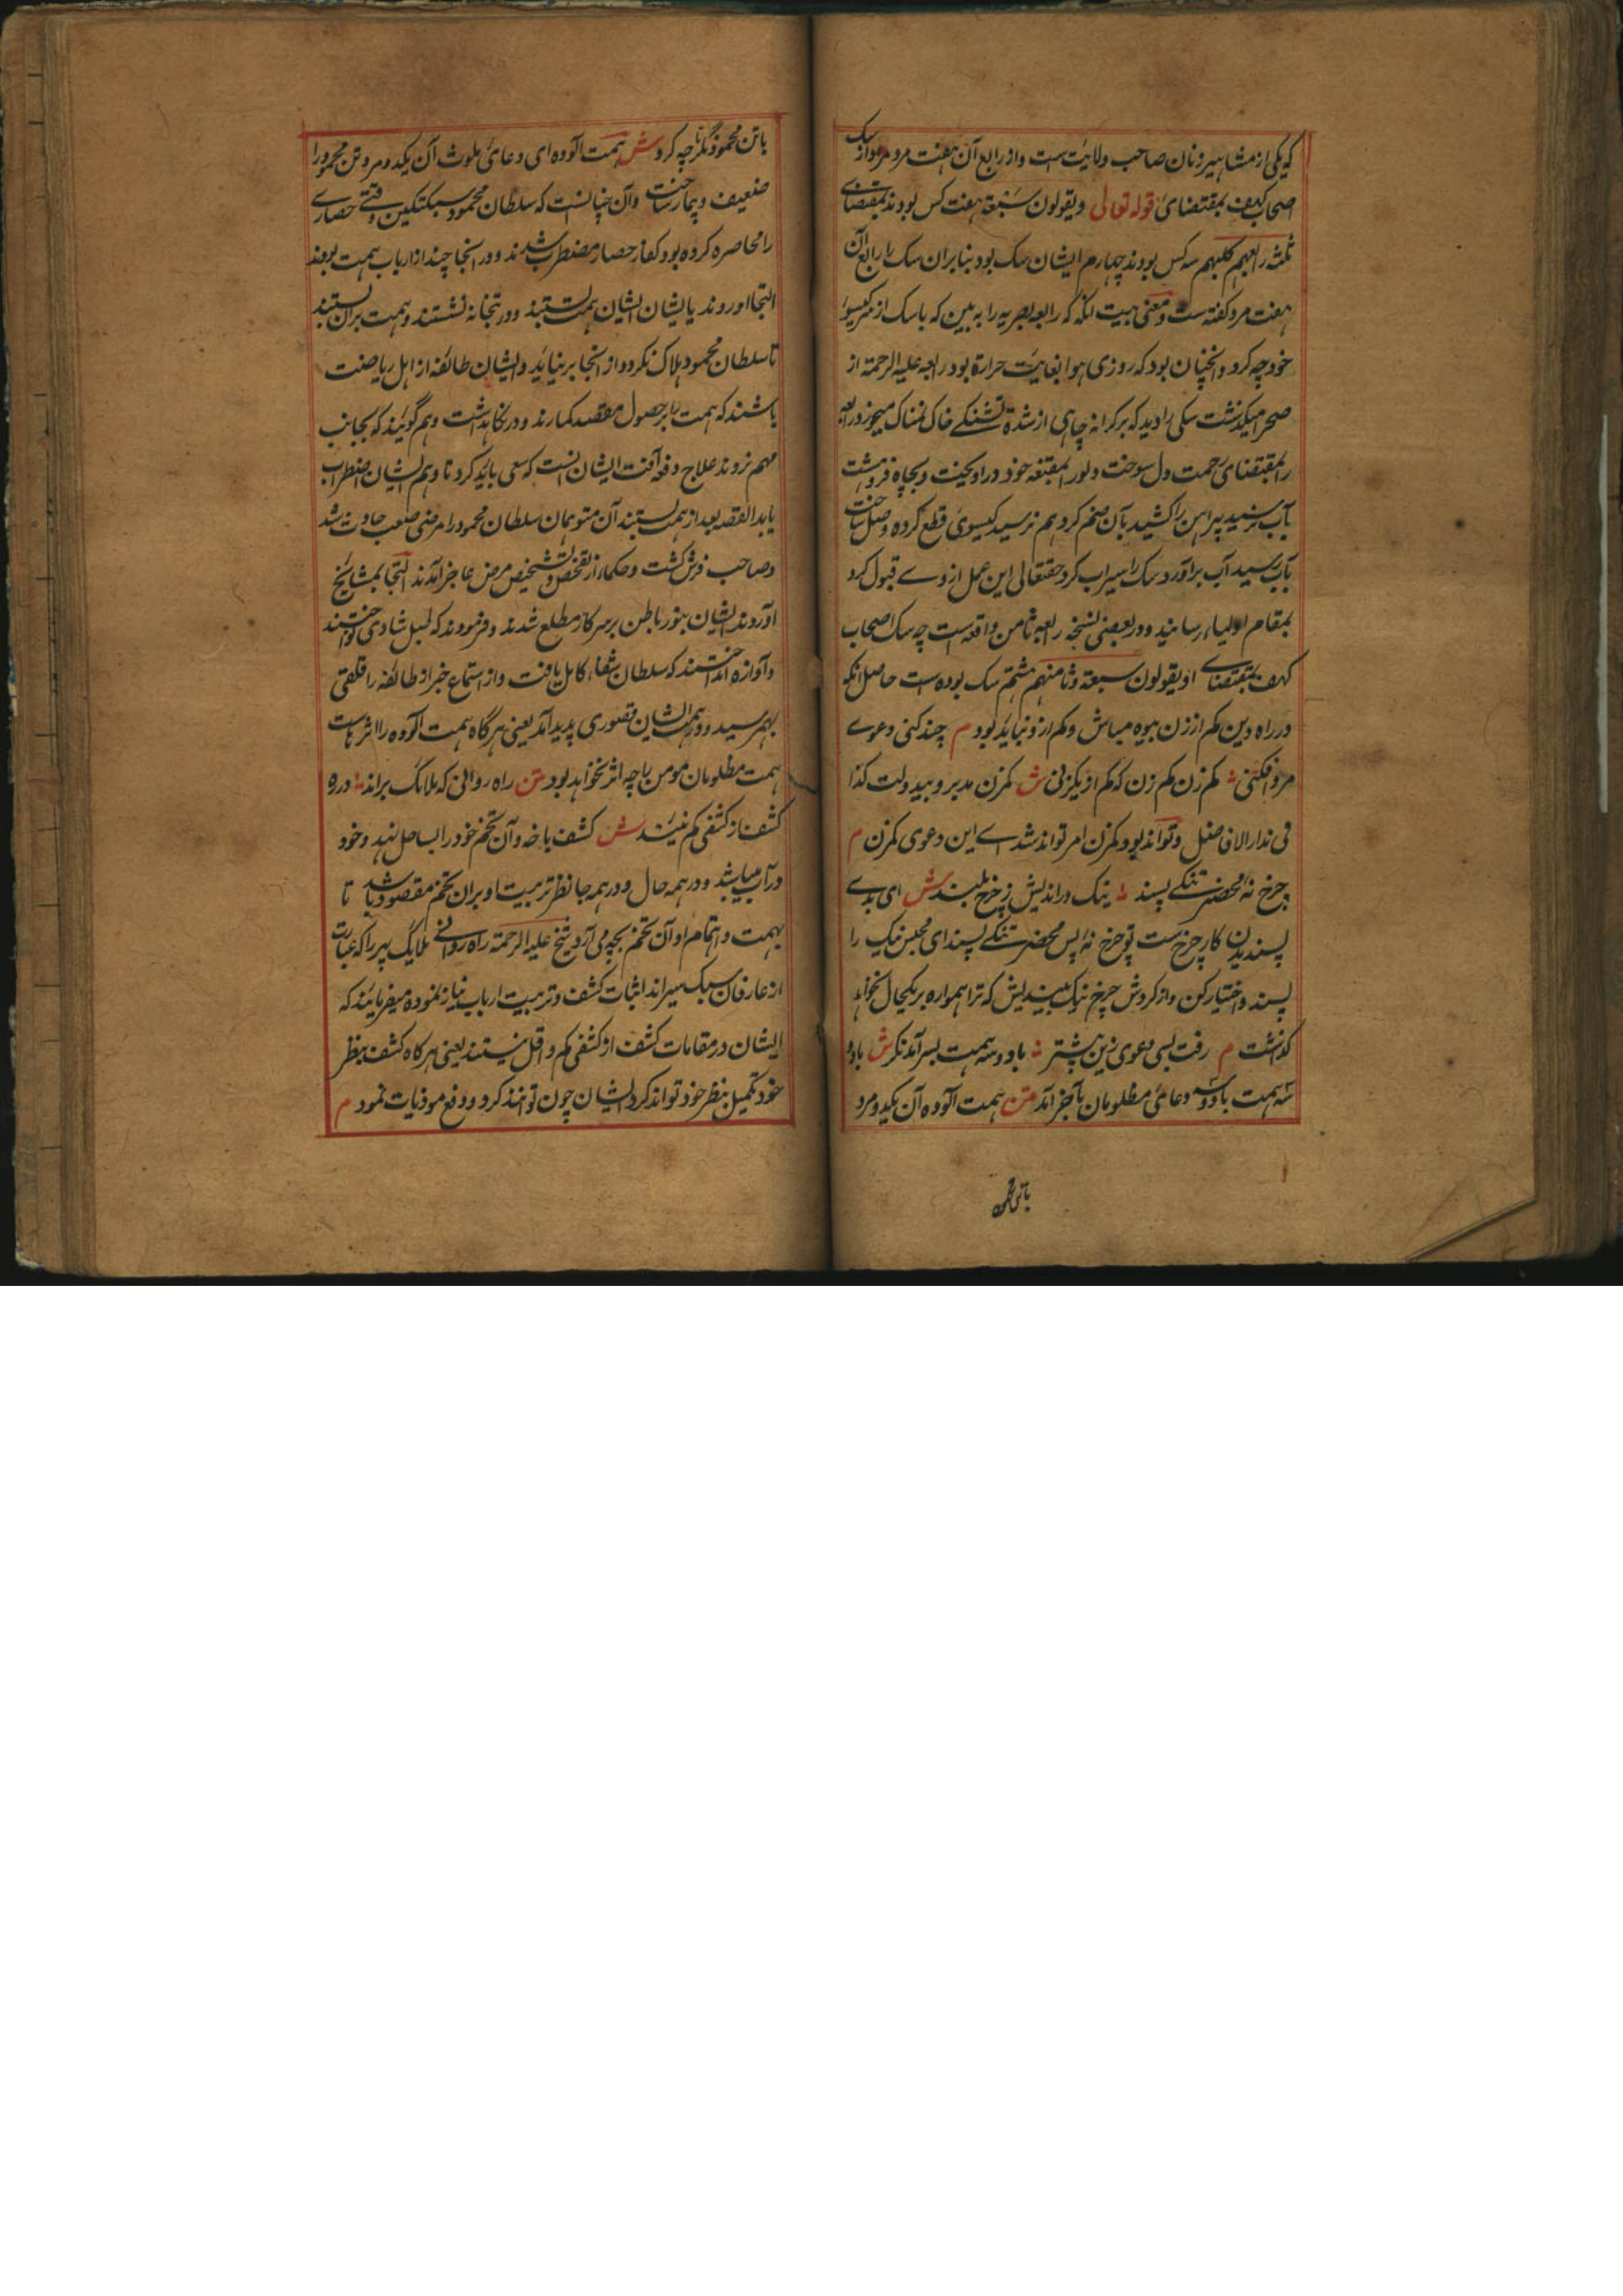 که یکی از مشاهیر زنان صاحب ولایت است و از رابع آن هفت مرد مراد سک
اصحاب کهف بمقتضای قوله تعالی ویقولون سبعة هفت کس بودند بمقتضای
ثلثه رابعهم کلبهم سه کس بودند چهارم ایشان سک بود بنابران سک را رابع آن
هفت مرد گفته ست و معنی بیت انکه که رابعه بصریه را به بین که با سک از سر گیسو
خود چه کرد و انچنان بود که روزی هوا بغایت حرارة بود رابعه علیه الرحمة از
صحرا میکذشت سکی را دید که بر کرانه چاهی از شدة تشنکے خاک نمناک میخورد رابعه
را بمقتضای رحمت دل سوخت و لور بمقنعه خود در اویخت و بچاه فروهشت
بآب نرسید پیراهن را کشید بآن ضم کرد هم نرسید گیسوی قطع کرده وصل ساخت
بآب رسید آب براورد سک را سیراب کرد حقتعالی این عمل از وے قبول کرد
بمقام اولیاء رسانید و در بعضی نسخه رابعه ثامن واقعه است چه سک اصحاب
کهف بمقتضاے او یقولون سبعة وثامنهم هشتم سک بوده است حاصل انکه
در راه دین کم از زن بیوه مباش و کم از و نباید بود م چند کنی دعوے
مرد افکنی کم زن کم زن که کم از یکزنی ش کمزن مدبر و بیدولت کذا
فی مدار الافاضل و تواند بود کمزن امر تواند شد اے این دعوی کمزن م
چرخ نۀ محضر تنکے پسند نیک در اندیش ز چرخ بلند ش ای بدے
پسندیدن کار چرخ ست تو چرخ نۀ پس محضر تنکے پسند ای مجلس نیک را
پسند و اختیار کن و از کردش چرخ نیک بیندیش که ترا همواره بر یکحال نخواهد
کذاشت م رفت بسی دعوی زین پیشتر تا دو سه همت بسر آمد نکر ش با دو
سه همت با دو سه دعائی مظلومان بآخر آمد متن همت آلوده آن یکدو مرد
با تن محمود
با تن محمود نکر تا چه کرد ش همت آلوده ای دعائ ملوث آن یکدو مرد تن محمود را
ضعیف و بیمار ساخت و آن چنانست که سلطان محمود سبکتکین وقتے حصارے
را محاصره کرده بود کفار حصار مضطرب شدند و در انجا چند از ارباب همت بودند
التجا اوردند بایشان ایشان همت بستند و در بتخانه نشستند و همت بران بستند
تا سلطان محمود هلاک نکردد از انجا برنیاید و ایشان طائفه از اهل ریاضت
باشند که همت را بر حصول مقصد کمارند و در نکاهداشت وهم گویند که بجانب
مهم نروند علاج دفع آفت ایشان انست که سعی باید کرد تا وهم ایشان اضطراب
یابد القصه بعد از همت بستند آن متوهمان سلطان محمود را مرضی صعب حادث شد
و صاحب فرش کشت و حکماء از تفحص و تشخیص مرض عاجز آمدند التجا بمشایخ
آوردند ایشان بنور باطن بر سر کار مطلع شدند و فرمودند که طبل شادی نواختند
و آوازه انداختند که سلطان شفاء کامل یافت و از استماع خبر از طائفه را قلقی
بهمرسید و در همت ایشان قصوری پدید آمد یعنی هر گاه همت آلوده را اثرهاست
همت مظلومان مومن را چه اثر نخواهد بود متن راه روانی که ملائک پراند در ره
کشف از کشفی کم نیند ش کشف باخه و آن تخم خود را بساحل نهد و خود
در آب میباشد و در همه حال و در همه جا نظر تربیت او بران تخم مقصود باشد تا
بهمت و اهتمام او آن تخم بچه می آرد شیخ علیه الرحمة راه روانے ملایک پر را که عبارت
از عارفان سبک سیر اند اثبات کشف و تربیت ارباب نیاز نموده میفرمایند که
ایشان در مقامات کشف از کشفی کم و اقل نیستند یعنی هر کاه کشف بنظر
خود تکمیل بنظر خود تواند کرد ایشان چون توانند کرد و دفع موذیات نمود م